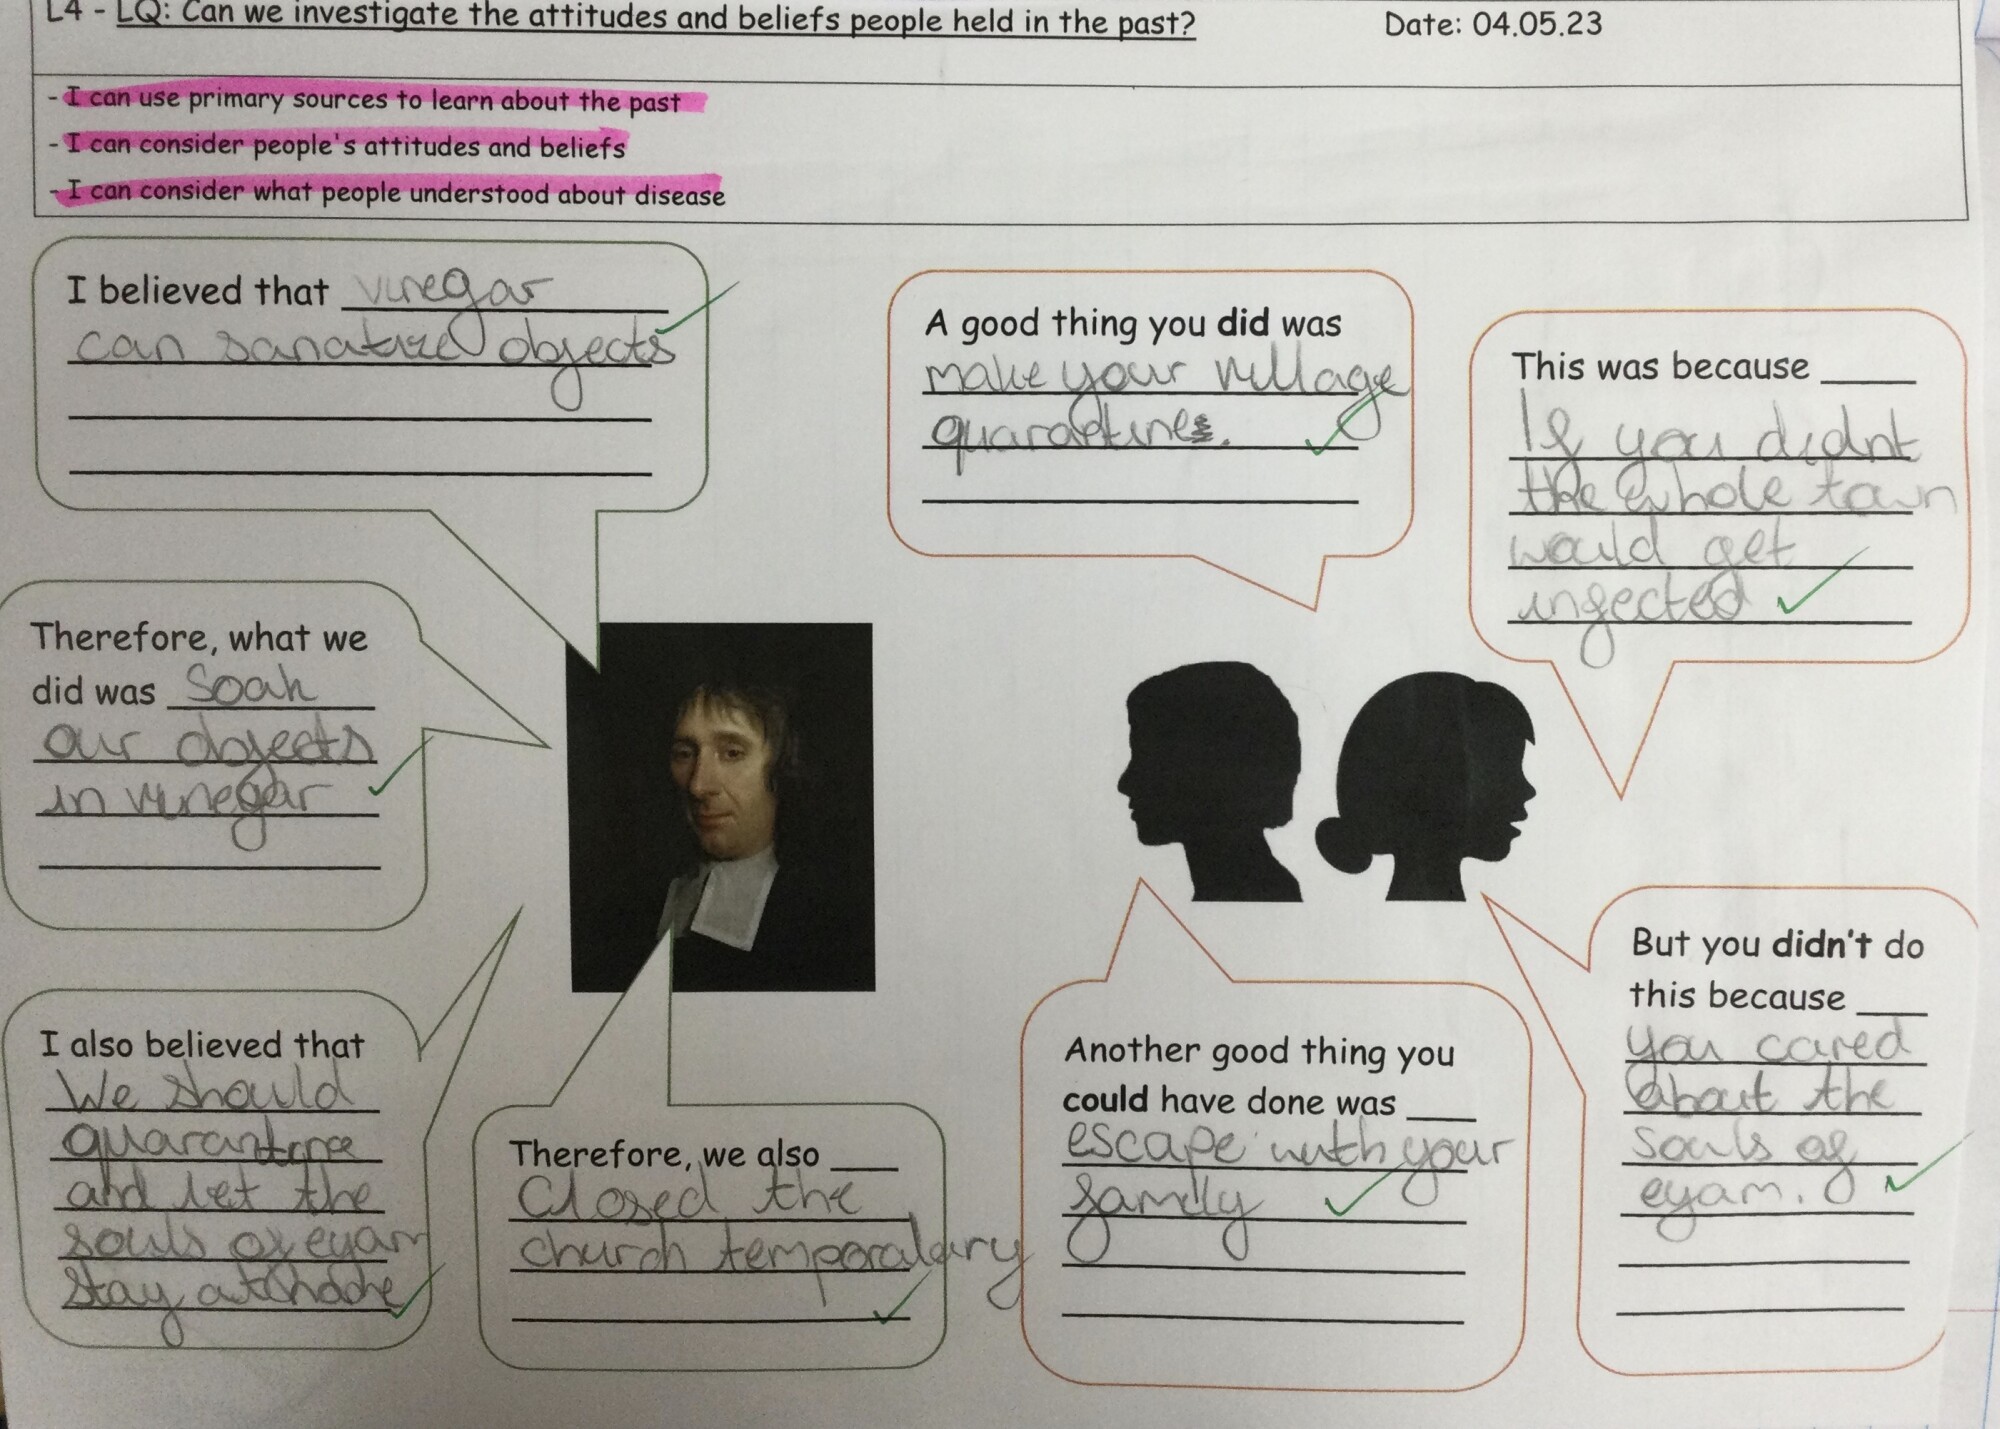 L4 - LQ: Can we investigate the attitudes and beliefs people held in the past? Date: 04.05.23
- I can use primary sources to learn about the past
- I can consider people's attitudes and beliefs
- I can consider what people understood about disease
I believed that vinegar
can sanatize objects
Therefore, what we
did was soak
our objects
in vinegar
I also believed that
We should
quarantine
and let the
souls of eyam
stay at home
Therefore, we also
Closed the
church temporalary
A good thing you did was
make your village
quarantine.
This was because
If you didnt
the whole town
would get
infected
Another good thing you
could have done was
escape with your
family
But you didn't do
this because
you cared
about the
souls of
eyam.